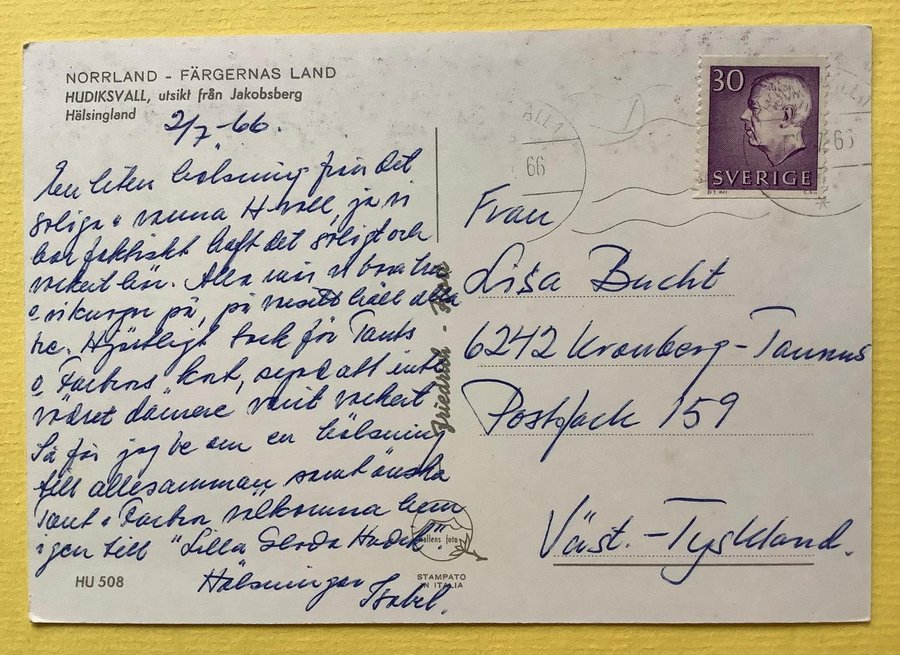 NORRLAND - FÄRGERNAS LAND
HUDIKSVALL, utsikt från Jakobsberg
Hälsingland
2/7-66.
En liten hälsning från det
soliga o varma H-vall, ja vi
har faktiskt haft det soligt och
vackert här. Alla
på, på håll alla
tre. Hjärtligt tack för Tants
o Farbrors kort, att inte
vädret därnere varit vackert
Så får jag be om en hälsning
till allesamman samt önska
Tant o Farbror välkomna hem
igen till "Lilla Glada Hudik".
Hälsningar
Isabel.
HU 508
foto
STAMPATO
IN ITALIA
30
SVERIGE
66
66
Frau
Lisa Bucht
6242 Kronberg-Taunus
Postfach 159
Väst.-Tyskland.